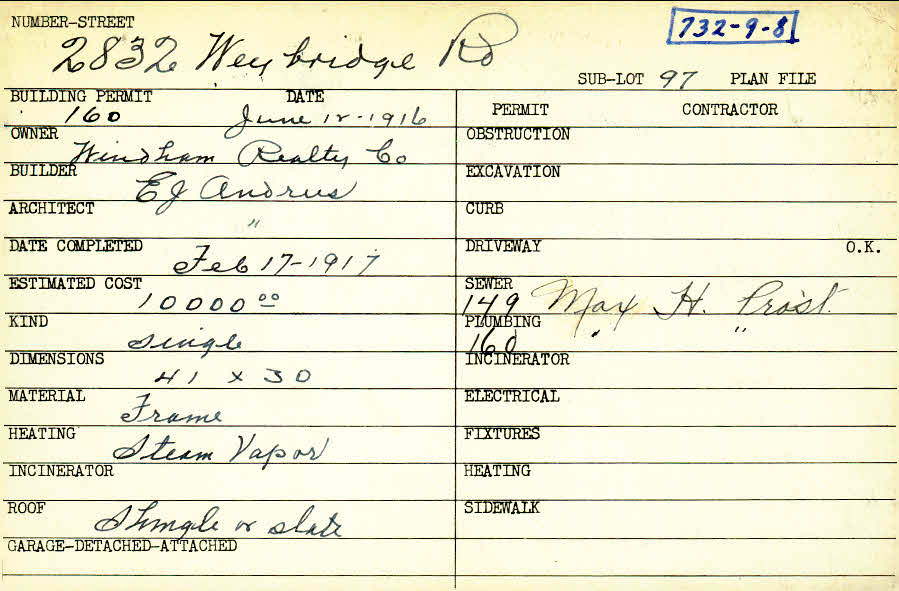 NUMBER-STREET
732-9-8
2832 Weybridge Rd
SUB-LOT 97 PLAN FILE
BUILDING PERMIT DATE
160 June 12-1916
PERMIT CONTRACTOR
OWNER
Windham Realty Co
OBSTRUCTION
BUILDER
EJ Andrus
EXCAVATION
ARCHITECT
"
CURB
DATE COMPLETED
Feb 17-1917
DRIVEWAY O.K.
ESTIMATED COST
10000 00
SEWER
149 Max H. Prost.
KIND
Single
PLUMBING
160 " "
DIMENSIONS
41 x 30
INCINERATOR
MATERIAL
Frame
ELECTRICAL
HEATING
Steam Vapor
FIXTURES
INCINERATOR
HEATING
ROOF
Shingle or slate
SIDEWALK
GARAGE-DETACHED-ATTACHED